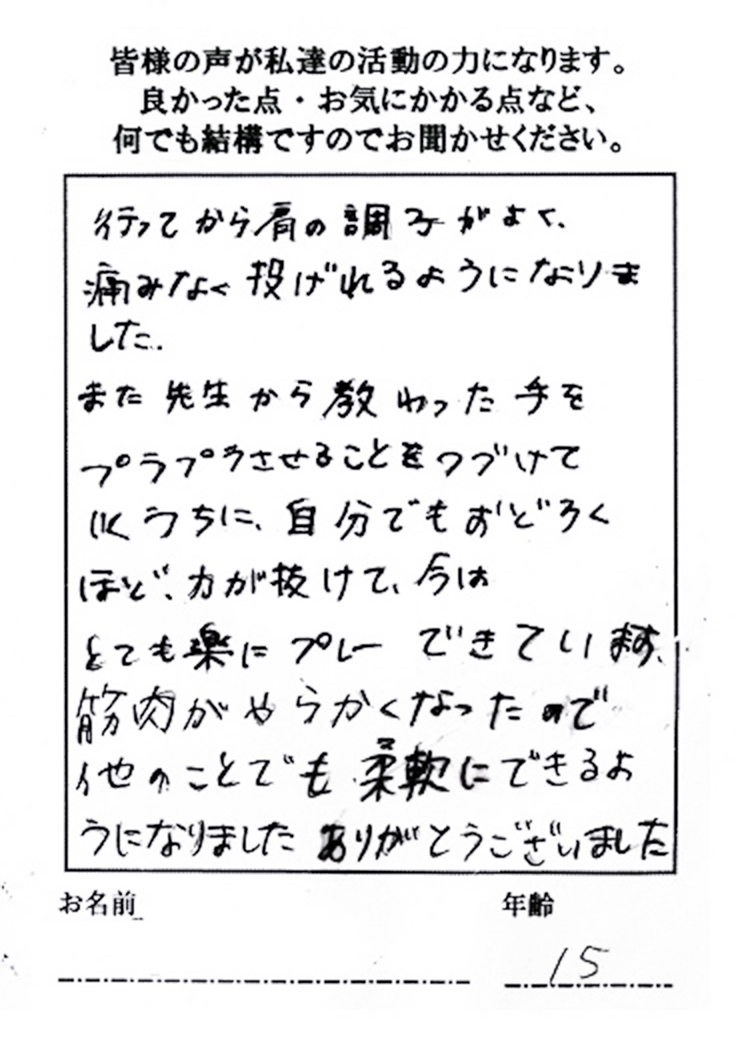 皆様の声が私達の活動の力になります。
良かった点・お気にかかる点など、
何でも結構ですのでお聞かせください。
行ってから肩の調子がよく、
痛みなく投げれるようになりま
した。
また先生から教わった手を
プラプラさせることをつづけて
いくうちに、自分でもおどろく
ほど、力が抜けて、今は
とても楽にプレーできています。
筋肉がやらかくなったので
他のことでも柔軟にできるよ
うになりました ありがとうございました
お名前
年齢
15